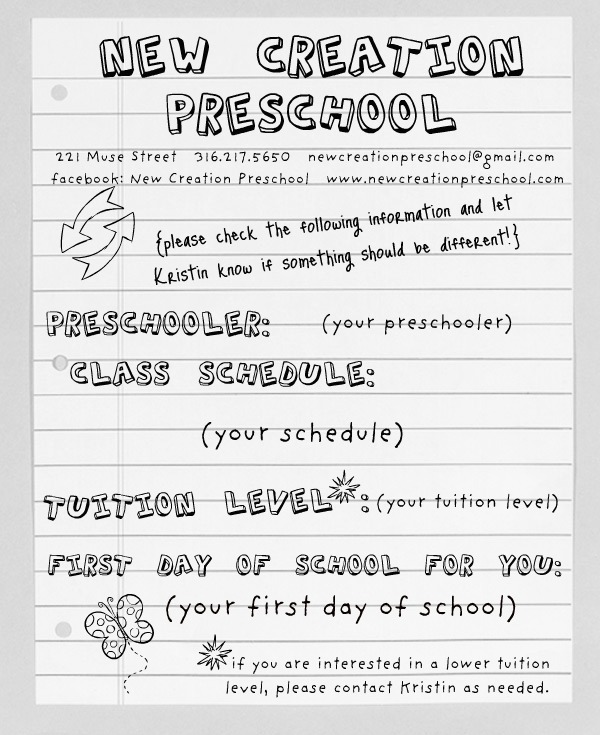 NEW CREATION
PRESCHOOL
221 Muse Street 316.217.5650 newcreationpreschool@gmail.com
facebook: New Creation Preschool www.newcreationpreschool.com
{please check the following information and let
Kristin know if something should be different!}
PRESCHOOLER: (your preschooler)
CLASS SCHEDULE:
(your schedule)
TUITION LEVEL*: (your tuition level)
FIRST DAY OF SCHOOL FOR YOU:
(your first day of school)
*if you are interested in a lower tuition
level, please contact Kristin as needed.